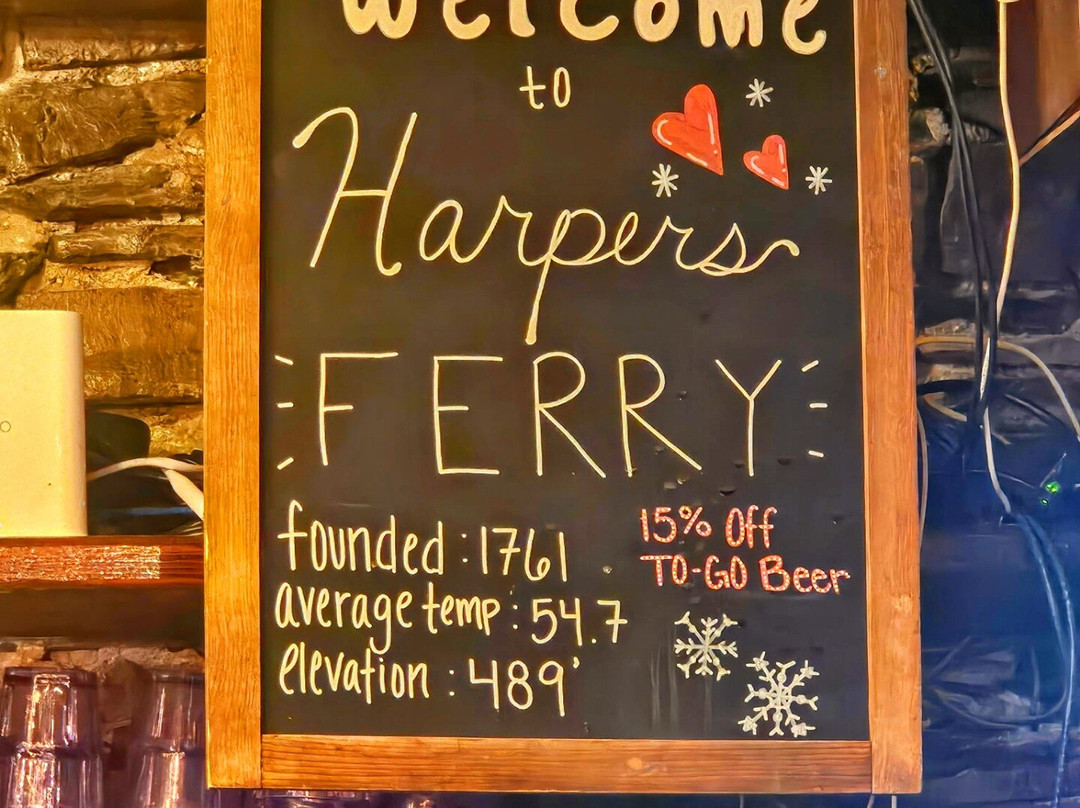 Welcome
to
Harpers
FERRY
founded : 1761
average temp : 54.7
elevation : 489'
15% Off
TO-GO Beer